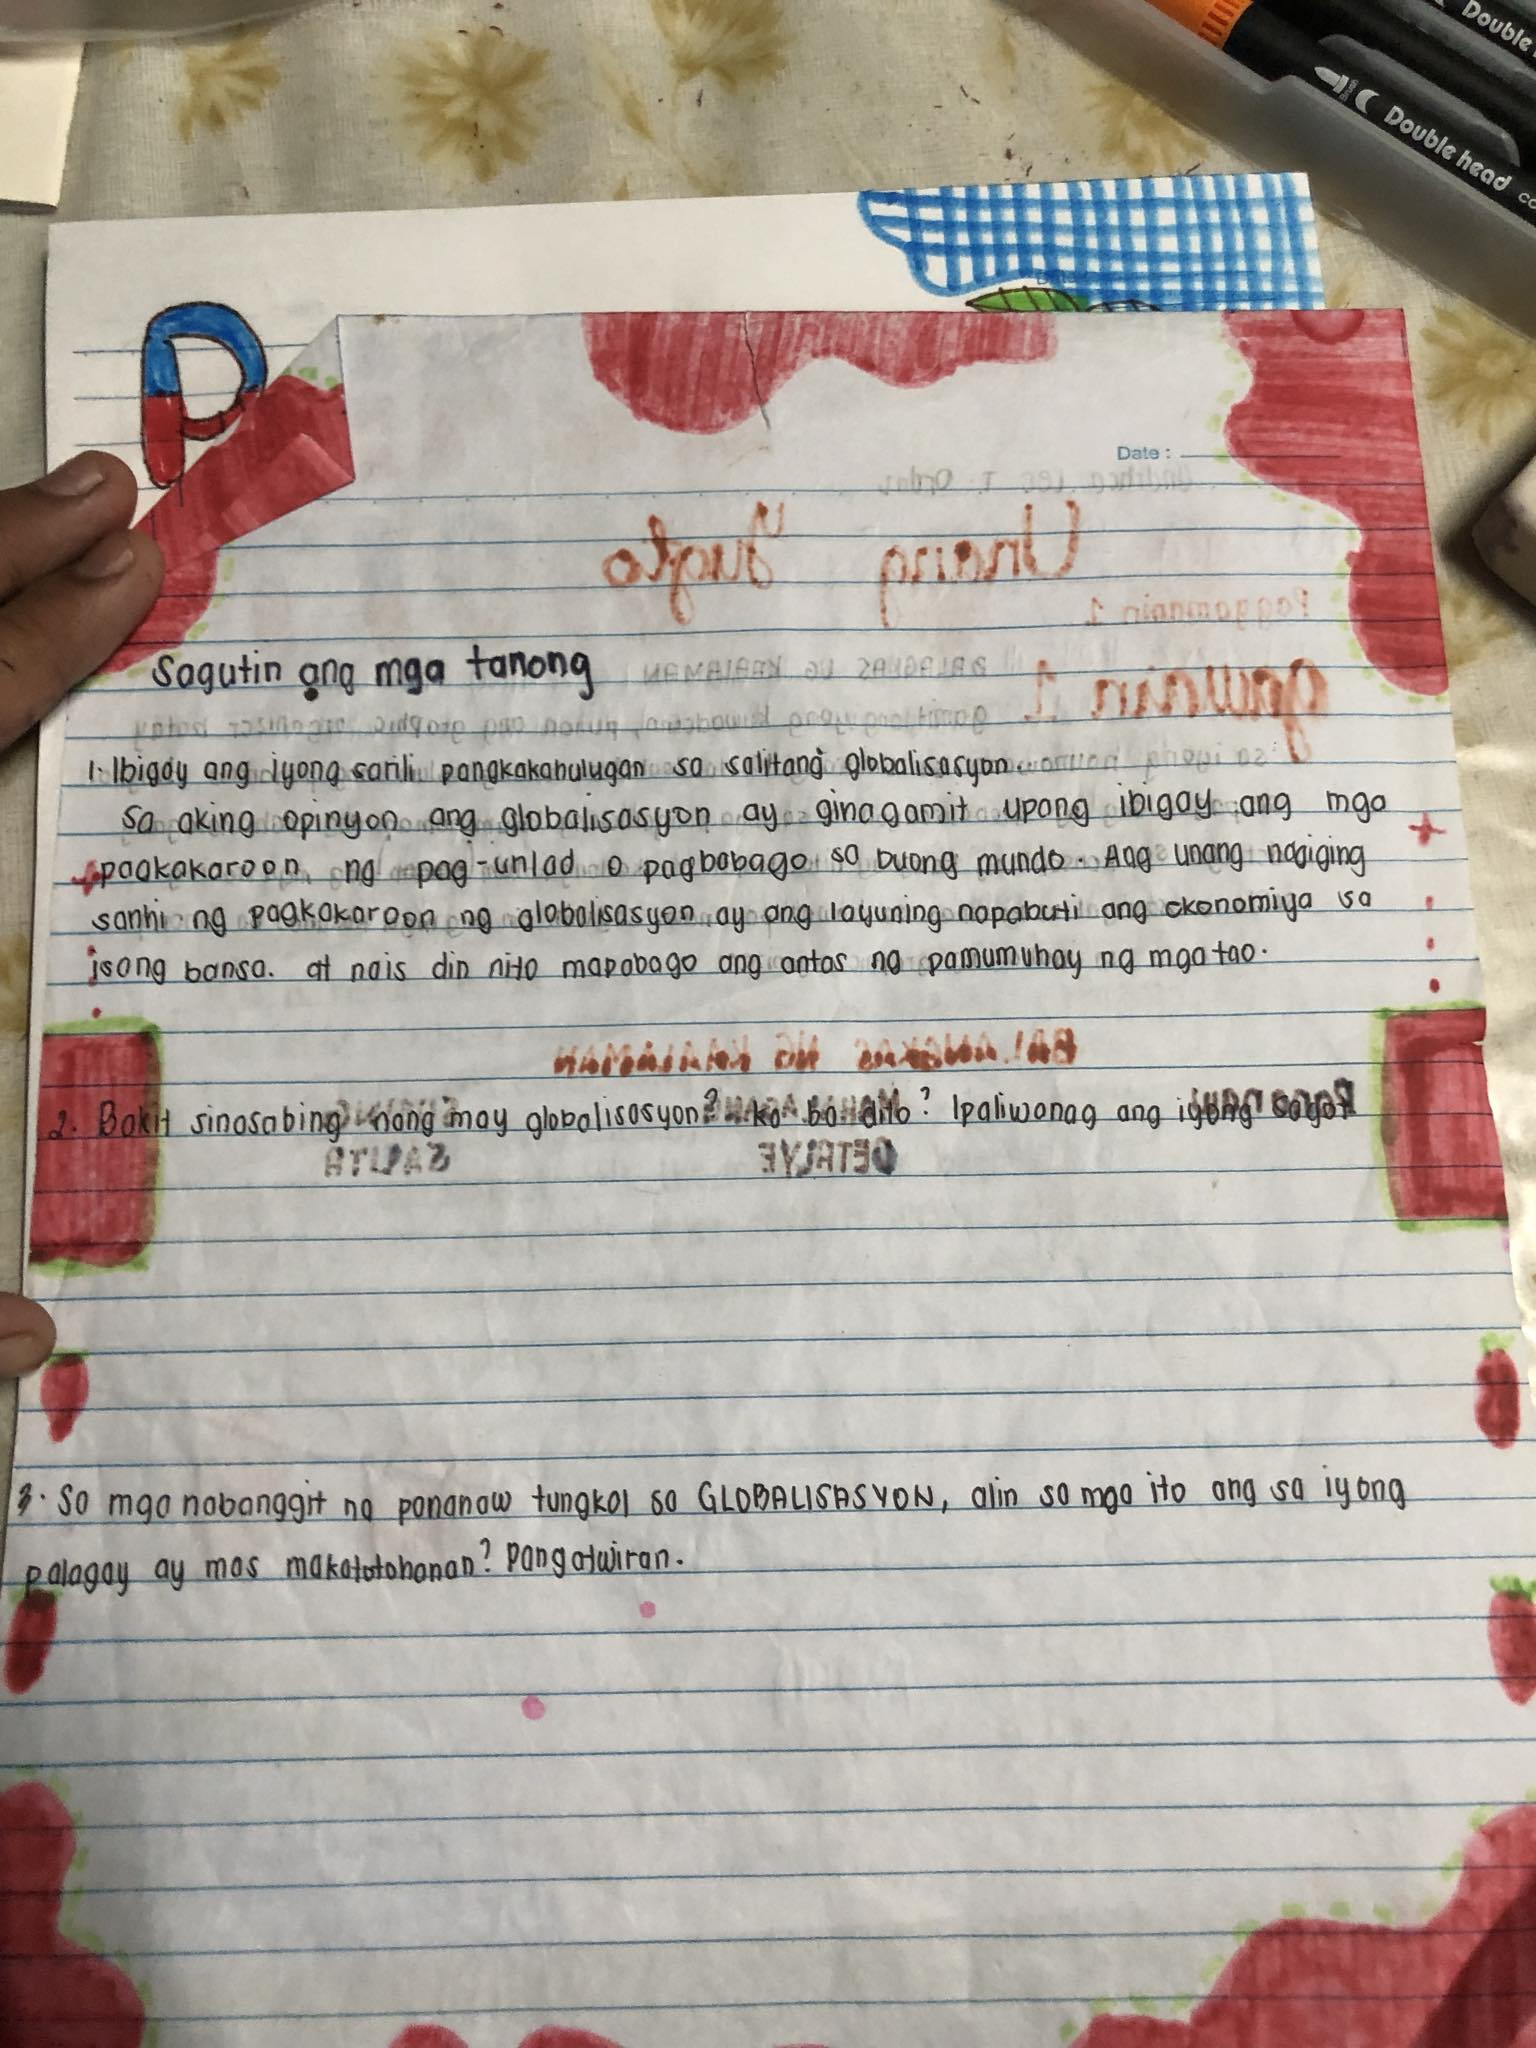 Double
Double head
Date :
Sagutin ang mga tanong
1. Ibigay ang iyong sarili pangkakahulugan sa salitang globalisasyon.
Sa aking opinyon ang globalisasyon ay ginagamit upang ibigay ang mga
pagkakaroon ng pag-unlad o pagbabago sa buong mundo. Ang unang nagiging
sanhi ng pagkakaroon ng globalisasyon ay ang layuning napabuti ang ekonomiya sa
isang bansa. at nais din nito mapabago ang antas ng pamumuhay ng mga tao.
2. Bakit sinasabing nang may globalisasyon? ka ba dito? Ipaliwanag ang iyong sagot
3. Sa mga nabanggit na pananaw tungkol sa GLOBALISASYON, alin sa mga ito ang sa iyong
palagay ay mas makatotohanan? Pangatwiran.